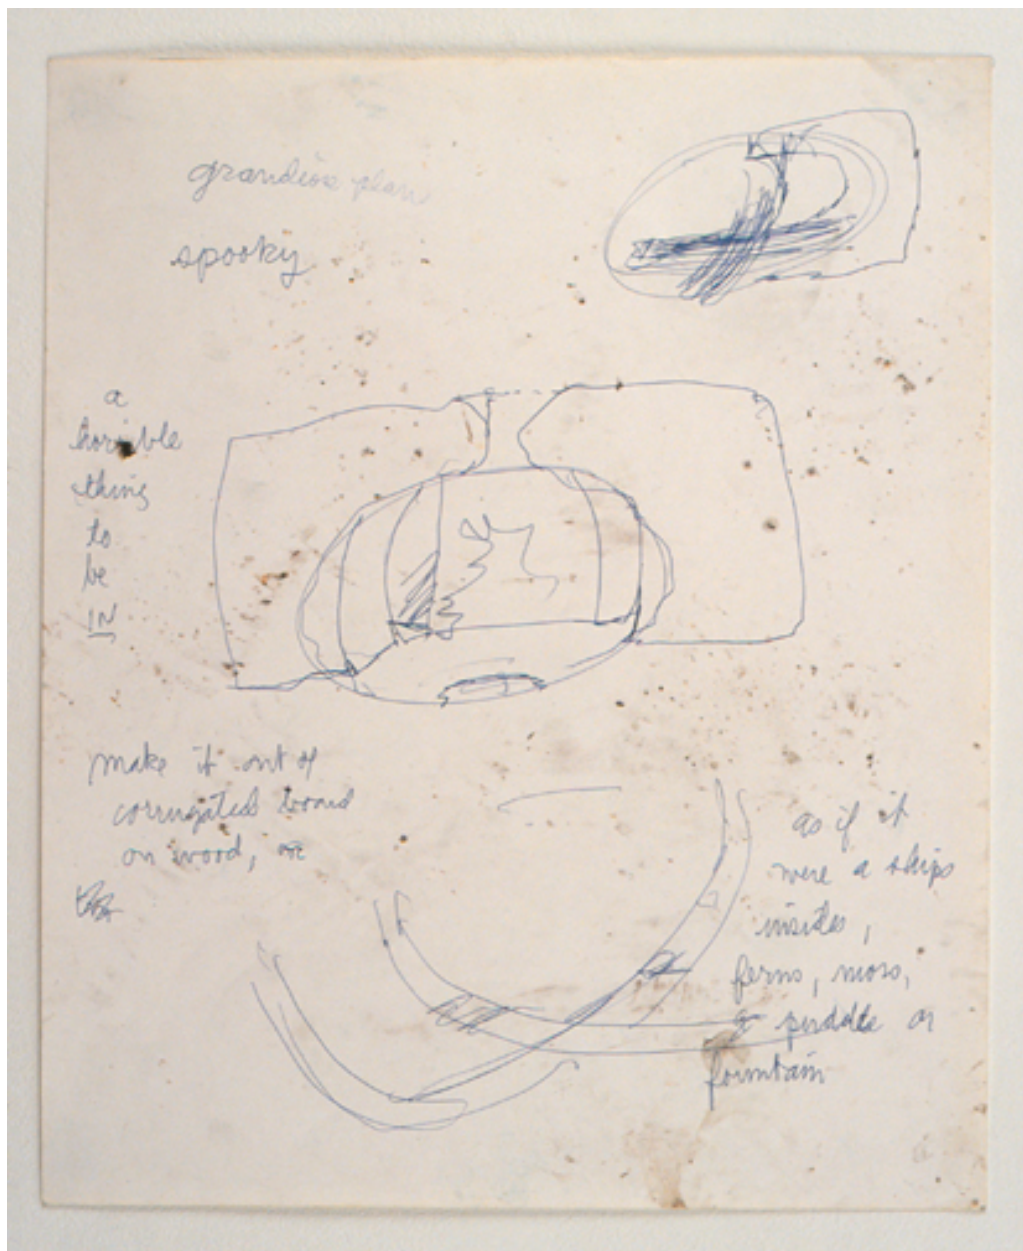 grandiose plan
spooky
a
horrible
thing
to
be
IN
make it out of
corrugated board
on wood, or
as if it
were a ships
insides,
ferns, moss,
a puddle or
fountain